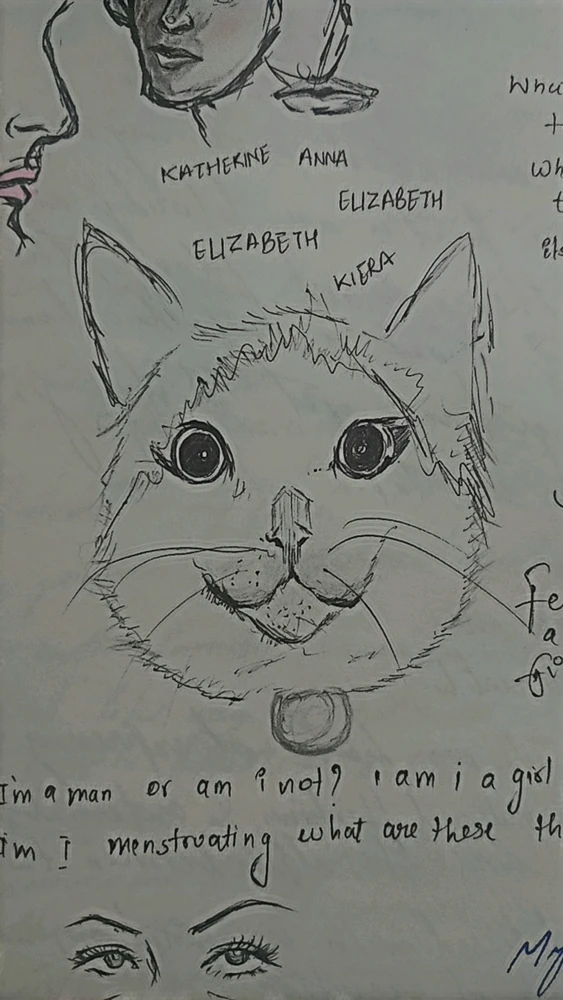 KATHERINE ANNA
ELIZABETH
ELIZABETH
KIERA
I'm a man or am i not? i am i a girl
i'm I menstruating what are these
fe
a
My